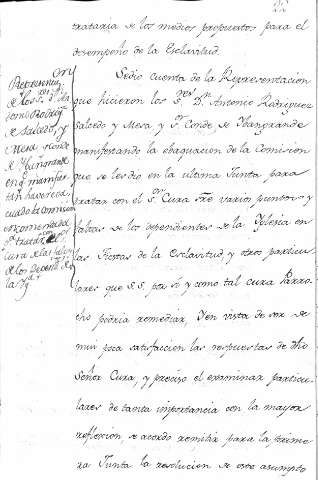 trataria de los medios propuestos para el
desempeño de la Esclavitud.
Se dio cuenta de la Representacion
que hicieron los S.res D.n Antonio Rodriguez
Salcedo y Mesa y S.r Conde de Ybangrande
manifestando la evaquacion de la Comision
que se les dio en la ultima Junta para
tratar con el S.r Cura sre varios puntos y
faltas de los dependientes de la Yglesia en
las Fiestas de la Esclavitud, y otros particu
lares que S.S. por sí y como tal cura Parro
cho podria remediar, Y en vista de ser de
mui poca satisfaccion las respuestas de dho
Señor Cura, y preciso el examinar particu
lares de tanta importancia con la mayor
reflexion, se acordo remitir para la prime
ra Junta la resolucion de este asumpto
Representa.on
de los S.res D.n An
tonio Rodrig.z
de Salcedo, y
Mesa y Conde
de Ybangrande
en q.e manifies
tan haver eva
cuado la comision
encomendada
p.a tratar con el S.r
Cura de las faltas
de los Depend.tes de
la Yg.a